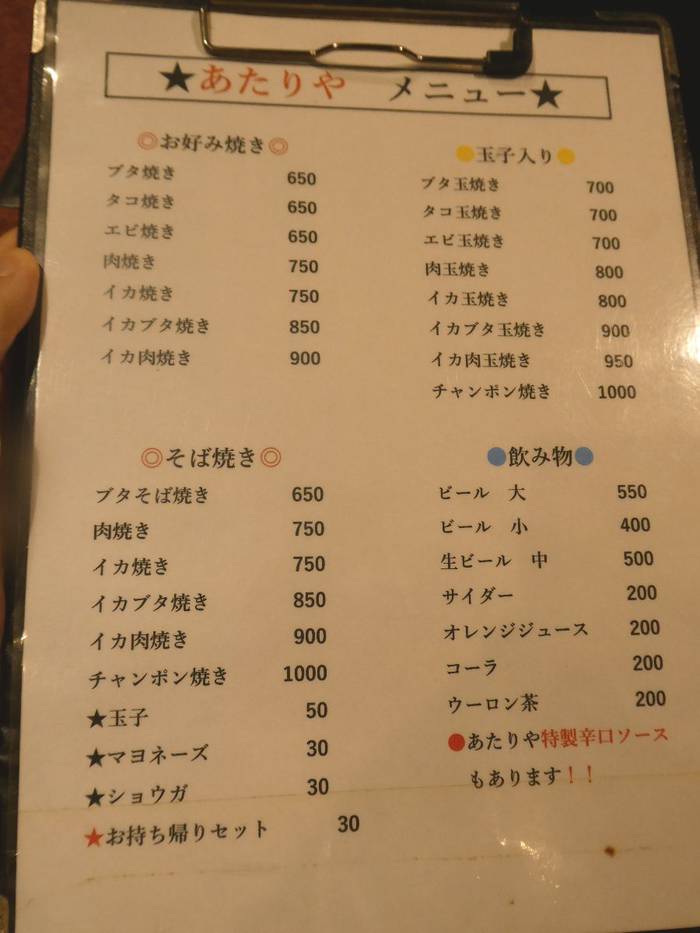 ★あたりや メニュー★
◎お好み焼き◎
ブタ焼き 650
タコ焼き 650
エビ焼き 650
肉焼き 750
イカ焼き 750
イカブタ焼き 850
イカ肉焼き 900
●玉子入り●
ブタ玉焼き 700
タコ玉焼き 700
エビ玉焼き 700
肉玉焼き 800
イカ玉焼き 800
イカブタ玉焼き 900
イカ肉玉焼き 950
チャンポン焼き 1000
◎そば焼き◎
ブタそば焼き 650
肉焼き 750
イカ焼き 750
イカブタ焼き 850
イカ肉焼き 900
チャンポン焼き 1000
★玉子 50
★マヨネーズ 30
★ショウガ 30
★お持ち帰りセット 30
●飲み物●
ビール 大 550
ビール 小 400
生ビール 中 500
サイダー 200
オレンジジュース 200
コーラ 200
ウーロン茶 200
●あたりや特製辛口ソース
もあります！！